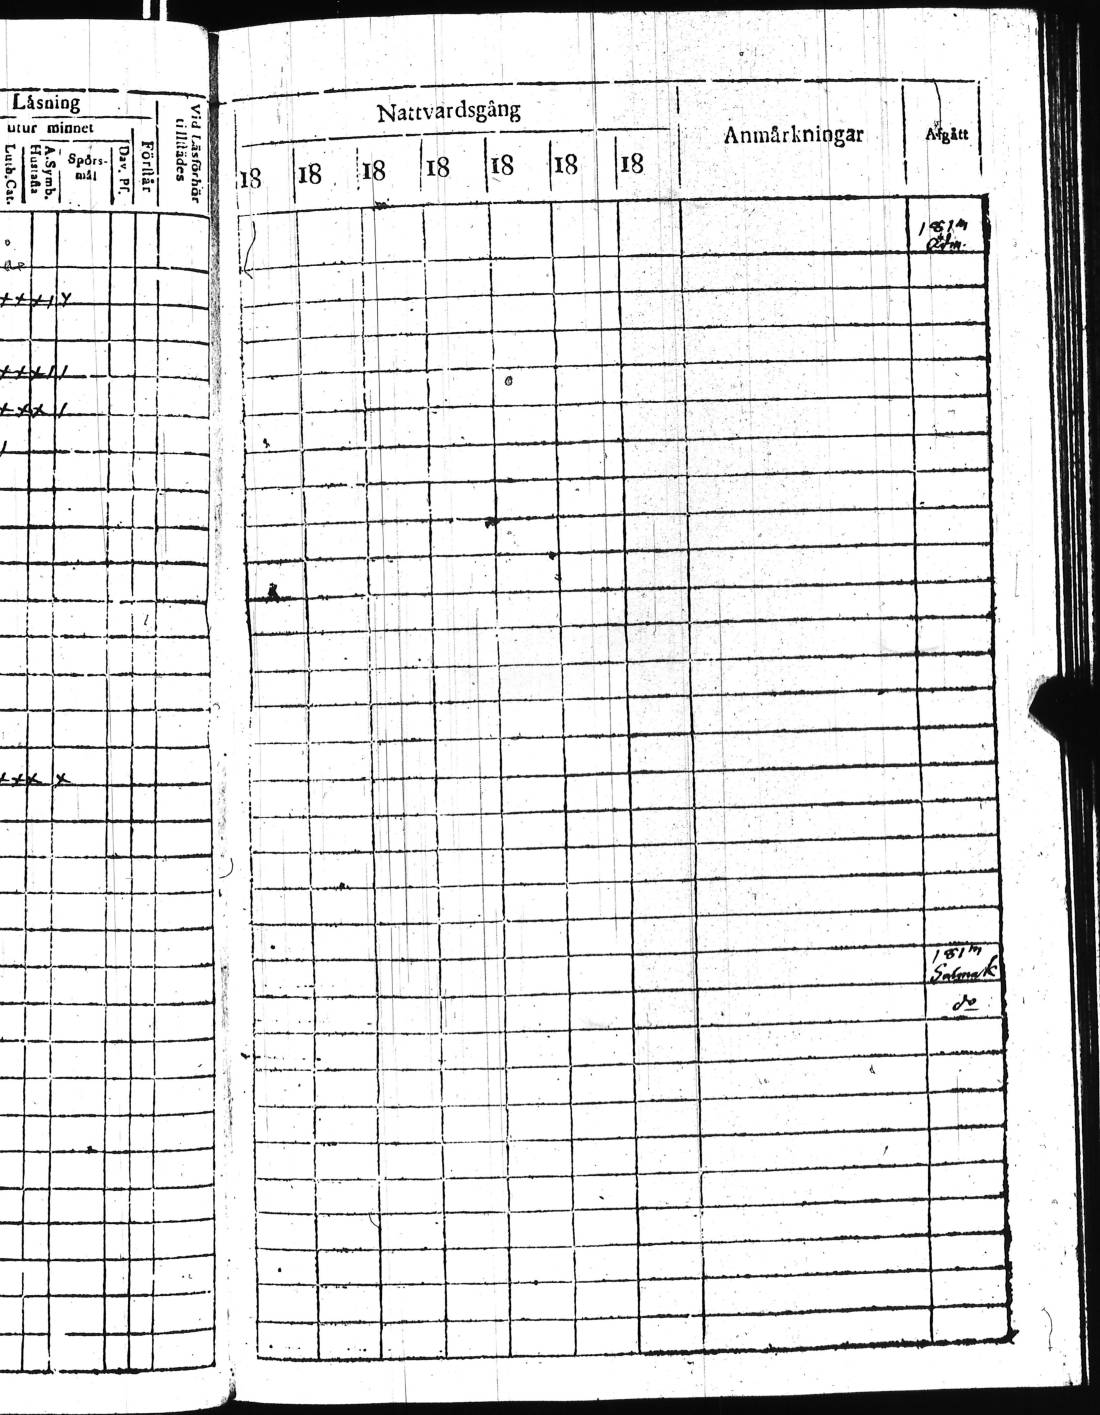 Låsning
utur minnet
Luth. Cat.
A. Symb.
Hustafla
Spörs-
mål
Dav. Pf.
Förstår
Vid Läsförhör
tillstädes
Nattvardsgång
18 18 18 18 18 18 18
Anmårkningar
Afgått
181
x x x 1 x
x x x 1 1
x x x 1
1
x x x x
181
Salmark
do